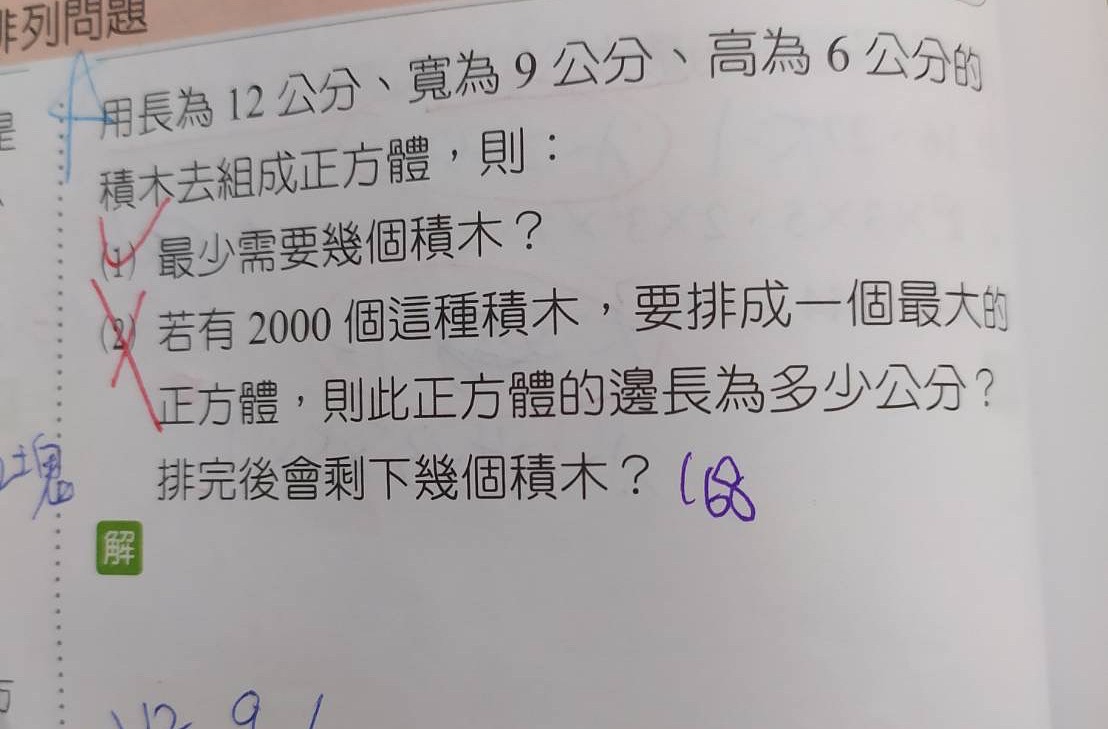 排列問題
用長為 12 公分、寬為 9 公分、高為 6 公分的
積木去組成正方體，則：
(1) 最少需要幾個積木？
(2) 若有 2000 個這種積木，要排成一個最大的
正方體，則此正方體的邊長為多少公分？
塊
排完後會剩下幾個積木？ 168
解
12 9